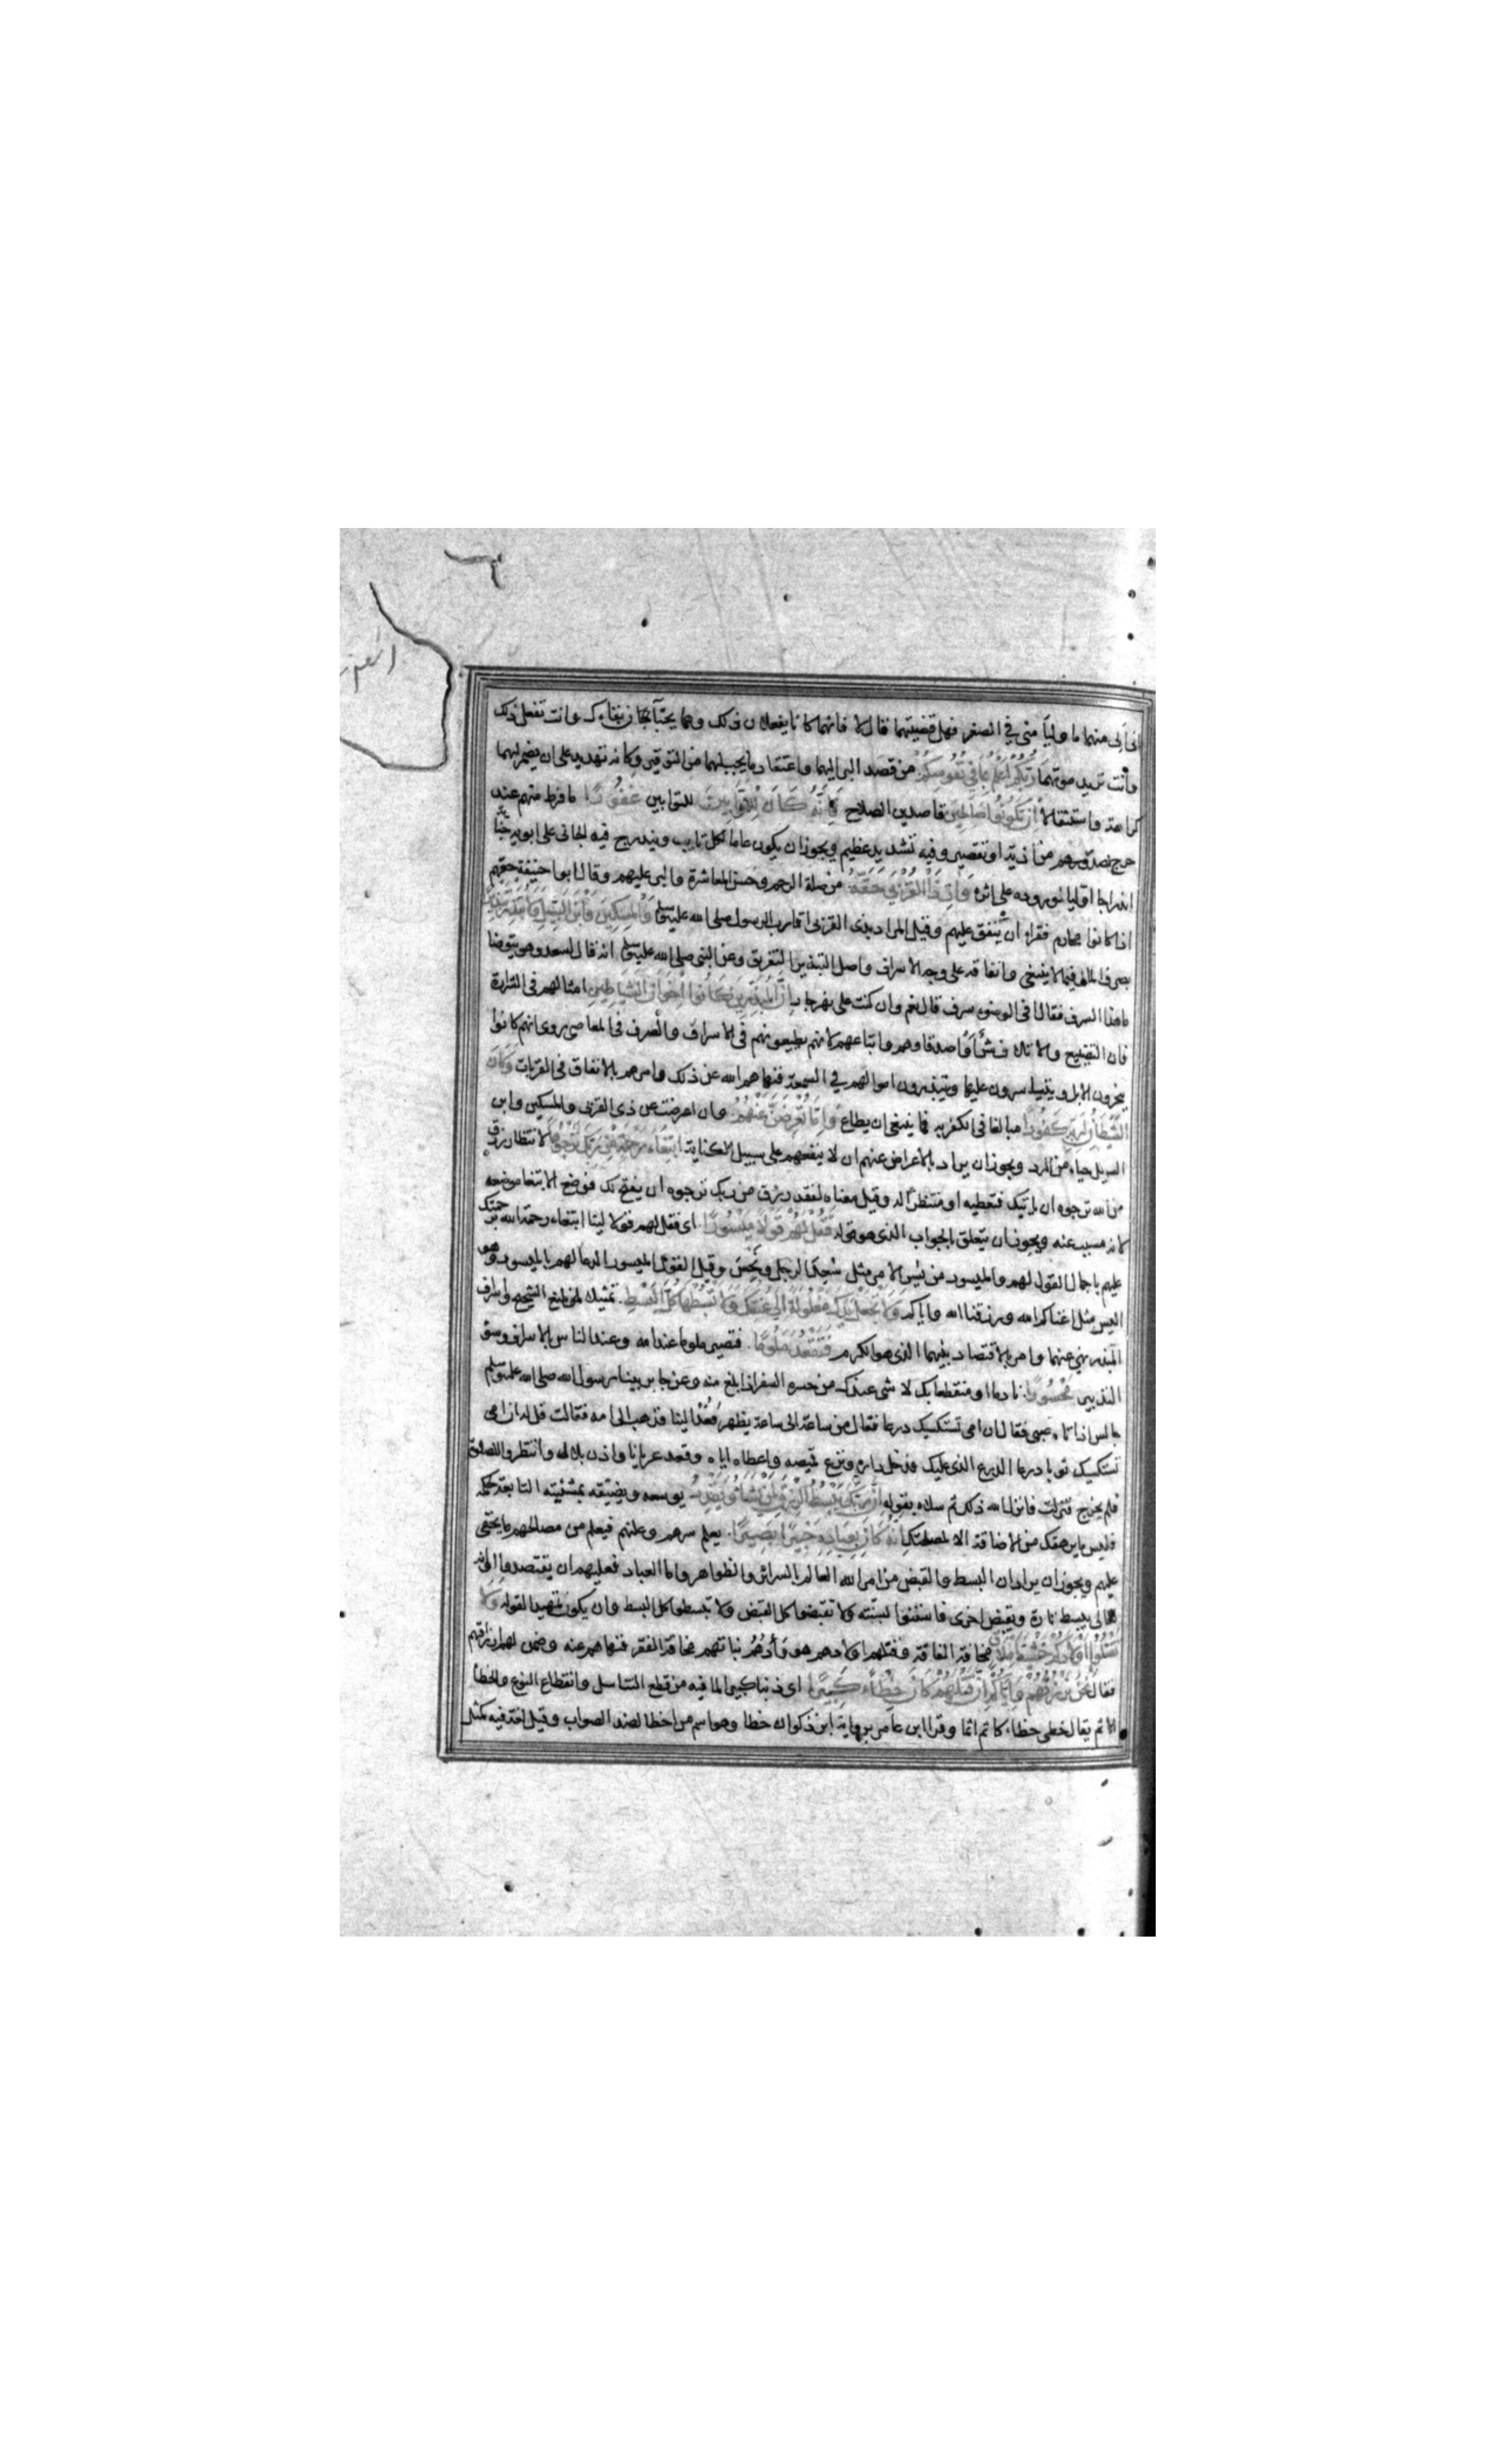 انى ألي منهما ما وليا منى في الصغر فهل قضيتهما قال لا فانهما كانا يفعلان ذلك وهما يحبان بقاءك وانت تفعل ذلك
وأنت تريد موتهما رَبُّكُمْ أَعْلَمُ بِمَا فِي نُفُوسِكُمْ من قصد البر اليهما واعتقاد ما يجب لهما من التوقير وكانه تهديد على ان يضمر لهما
كراهة واستثقالا أن تَكُونُوا صَالِحِينَ قاصدين الصلاح فَإِنَّهُ كَانَ لِلْأَوَّابِينَ للتوابين غَفُورًا ما فرط منهم عند
حرج الصدر من اذية او تقصير وفيه تشديد عظيم ويجوز ان يكون عاما لكل تايب ويندرج فيه الجانى على ابويه
اندراجا اوليا لوروده على اثره وَآتِ ذَا الْقُرْبَى حَقَّهُ من صلة الرحم وحسن المعاشرة والبر عليهم وقال ابو حنيفة حقهم
اذا كانوا محارم فقراء ان ينفق عليهم وقيل المراد بذى القربى اقارب الرسول صلى الله عليه وسلم وَالْمِسْكِينَ وَابْنَ السَّبِيلِ وَلَا تُبَذِّرْ تَبْذِيرًا
بصرف المال فيما لا ينبغى وانفاقه على وجه الاسراف واصل التبذير التفريق وعن النبى صلى الله عليه وسلم انه قال لسعد وهو يتوضا
ما هذا السرف فقال أفى الوضوء سرف قال نعم وان كنت على نهر جار إِنَّ الْمُبَذِّرِينَ كَانُوا إِخْوَانَ الشَّيَاطِينِ امثالهم فى الشرارة
فان التضييع والاتلاف شر او اصدقاوهم واتباعهم لانهم يطيعونهم فى الاسراف والصرف فى المعاصى روى انهم كانوا
ينحرون الابل ويتياسرون عليها ويبذرون اموالهم في السمعة فنهاهم الله عن ذلك وامرهم بالانفاق فى القربات وَكَانَ
الشَّيْطَانُ لِرَبِّهِ كَفُورًا مبالغا فى الكفر به فما ينبغى ان يطاع وَإِمَّا تُعْرِضَنَّ عَنْهُمُ وان اعرضت عن ذى القربى والمسكين وابن
السبيل حياء من الرد ويجوز ان يراد بالاعراض عنهم ان لا ينفعهم على سبيل الكناية ابْتِغَاءَ رَحْمَةٍ مِنْ رَبِّكَ تَرْجُوهَا لانتظار رزق
من الله ترجوه ان ياتيك فتعطيه او منتظرا له وقيل معناه لفقد رزق من ربك ترجوه ان يفتح لك فوضع الابتغاء موضعه
لانه مسبب عنه ويجوز ان يتعلق بالجواب الذى هو قوله فَقُلْ لَهُمْ قَوْلًا مَيْسُورًا اى فقل لهم قولا لينا ابتغاء رحمة الله برحمتك
عليهم باجمال القول لهم والميسور من يُسِر الامر مثل سُعِد الرجل ونُحِس وقيل القول الميسور الدعا لهم بالميسور وهو
اليسر مثل اغناكم الله ورزقنا الله واياكم وَلَا تَجْعَلْ يَدَكَ مَغْلُولَةً إِلَى عُنُقِكَ وَلَا تَبْسُطْهَا كُلَّ الْبَسْطِ تمثيلان لمنع الشحيح واسراف
المبذر نهى عنهما وامر بالاقتصاد بينهما الذى هو الكرم فَتَقْعُدَ مَلُومًا فتصير ملوما عند الله وعند الناس بالاسراف وسوء
التدبير مَحْسُورًا نادما او منقطعا بك لا شى عندك من حسره السفر اذا بلغ منه وعن جابر بينا رسول الله صلى الله عليه وسلم
جالس اذ اتاه صبى فقال ان امى تستكسيك درعا فقال من ساعة الى ساعة يظهر فعُد الينا فذهب الى امه فقالت قل له ان امى
تستكسيك الدرع الذى عليك فدخل داره ونزع قميصه واعطاه اياه وقعد عريانا واذن بلال وانتظروا للصلوة
فلم يخرج فنزلت فانزل الله ذلك ثم سلاه بقوله إِنَّ رَبَّكَ يَبْسُطُ الرِّزْقَ لِمَنْ يَشَاءُ وَيَقْدِرُ يوسعه ويضيقه بمشيئته التابعة للحكمة
فليس ما يرهقك من الاضافة الا لمصلحتك إِنَّهُ كَانَ بِعِبَادِهِ خَبِيرًا بَصِيرًا يعلم سرهم وعلنهم فيعلم من مصالحهم ما يخفى
عليهم ويجوز ان يراد ان البسط والقبض من امر الله العالم بالسرائر والظواهر واما العباد فعليهم ان يقتصدوا او انه
تعالى يبسط تارة ويقبض اخرى فاستنوا بسنته ولا تقبضوا كل القبض ولا تبسطوا كل البسط وان يكون تمهيدا لقوله وَلَا
تَقْتُلُوا أَوْلَادَكُمْ خَشْيَةَ إِمْلَاقٍ مخافة الفاقة وقتلهم اولادهم هو وأدهم بناتهم مخافة الفقر فنهاهم عنه وضمن لهم ارزاقهم
فقال نَحْنُ نَرْزُقُهُمْ وَإِيَّاكُمْ إِنَّ قَتْلَهُمْ كَانَ خِطْأً كَبِيرًا اى ذنبا كبيرا لما فيه من قطع التناسل وانقطاع النوع والخطأ
الاثم يقال خطئ خطاء كاثم اثما وقرا ابن عامر برواية ابن ذكوان خطا وهو اسم من اخطا لضد الصواب وقيل لغة فيه كمثل